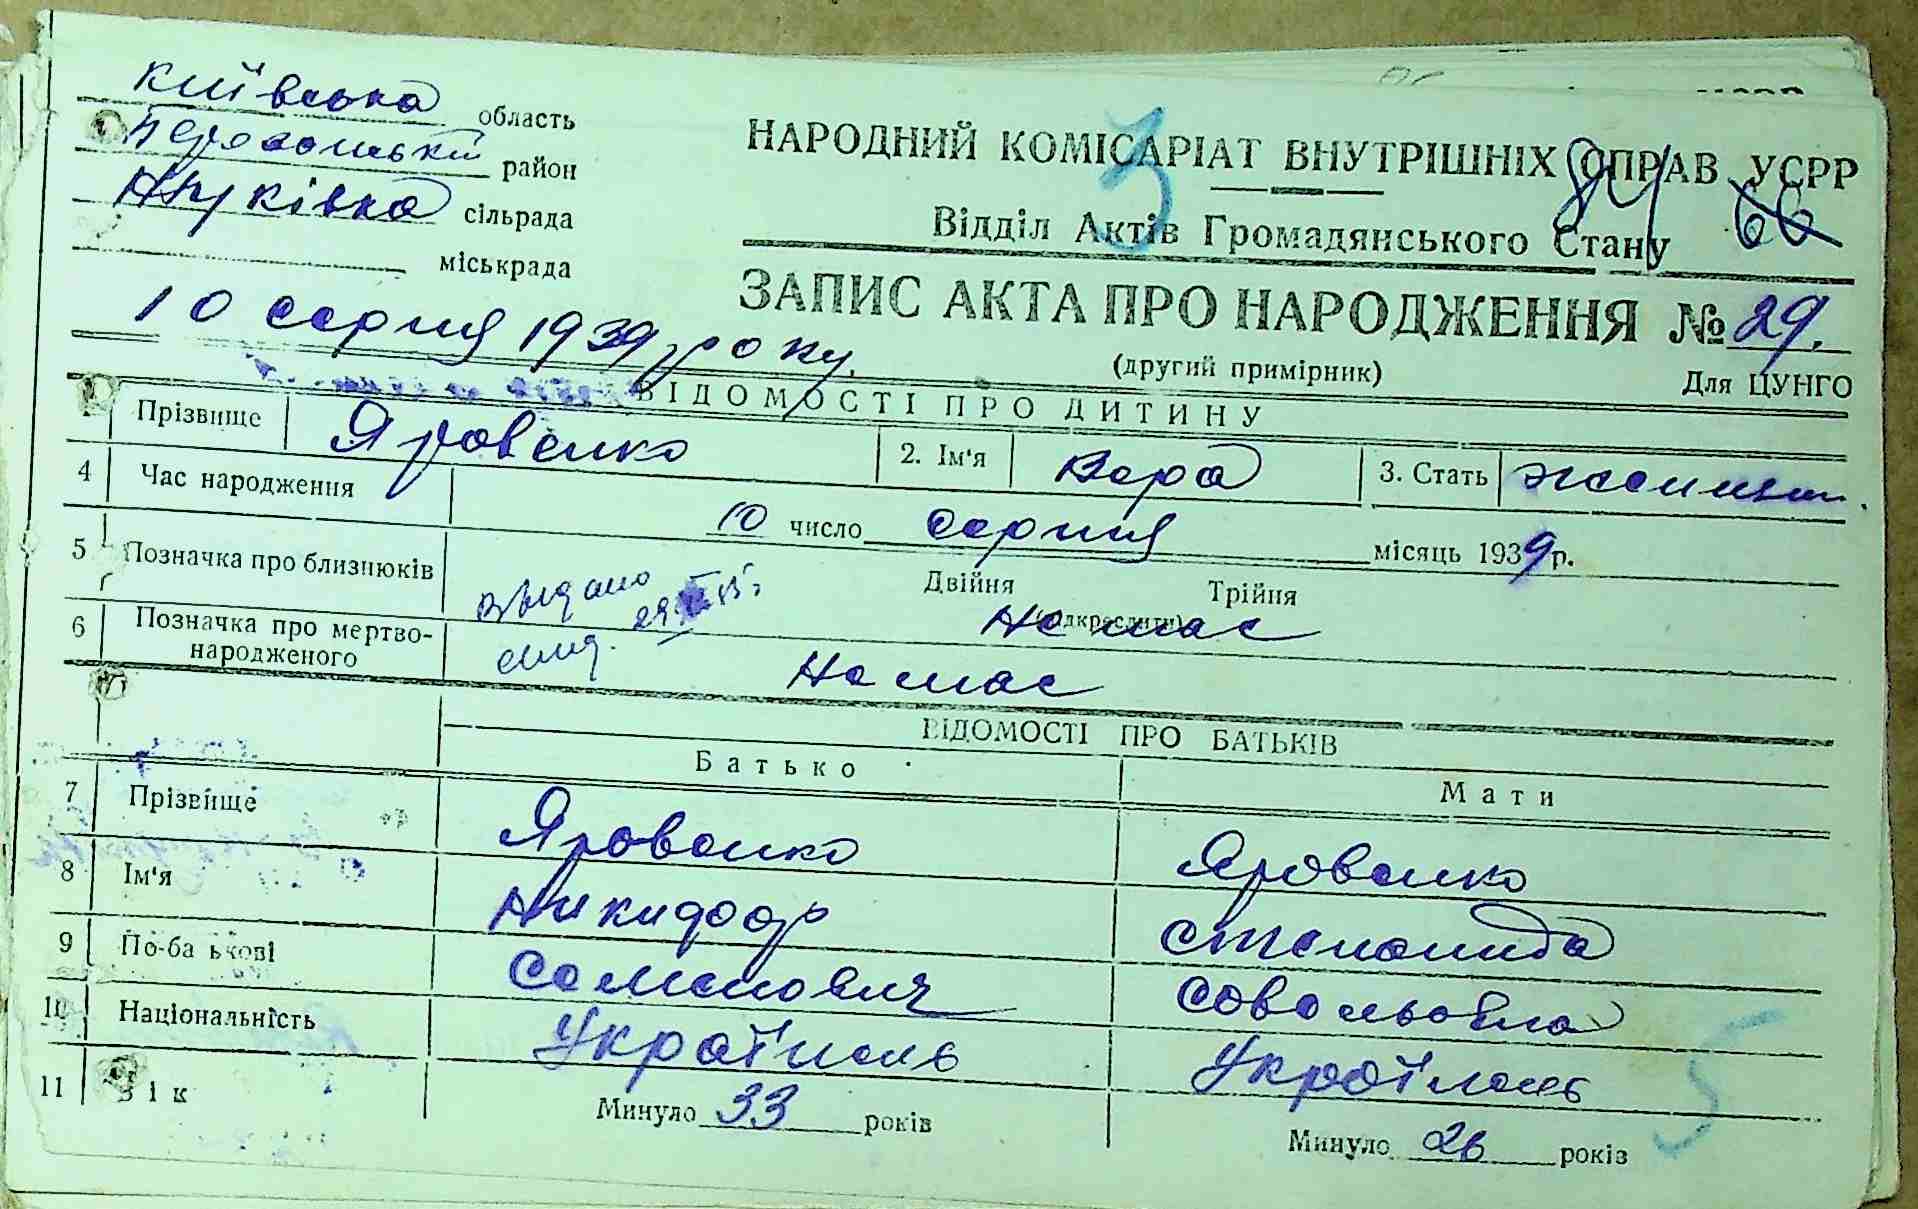 Київська область
район
сільрада
міськрада
НАРОДНИЙ КОМІСАРІАТ ВНУТРІШНІХ СПРАВ УСРР
3
84 66
Відділ Актів Громадянського Стану
ЗАПИС АКТА ПРО НАРОДЖЕННЯ № 29.
10 серпня 1939 року.
(другий примірник)
Для ЦУНГО
ВІДОМОСТІ ПРО ДИТИНУ
1 Прізвище Яровенко 2. Ім'я Вера 3. Стать
4 Час народження 10 число серпня місяць 1939 р.
5 Позначка про близнюків Двійня Трійня
Немає
6 Позначка про мертво-
народженого Немає
ВІДОМОСТІ ПРО БАТЬКІВ
Батько Мати
7 Прізвище Яровенко Яровенко
8 Ім'я Никифор Степанида
9 По-ба ькові Семенович Совельовна
10 Національність Українець Українець
11 Вік Минуло 33 років Минуло 26 років
5